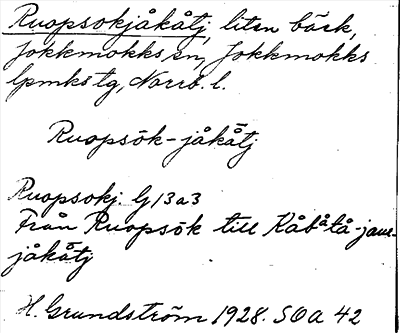 Ruopsokjåkåtj, liten bäck,
Jokkmokks sn, Jokkmokks
lpmkstg, Norrb. l.
Ruopsōk-jåkåtj
Ruopsokj. lj 13 a 3
Från Ruopsōk till Kåbåtå-jaure-
jåkåtj
H. Grundström 1928. SOA 42